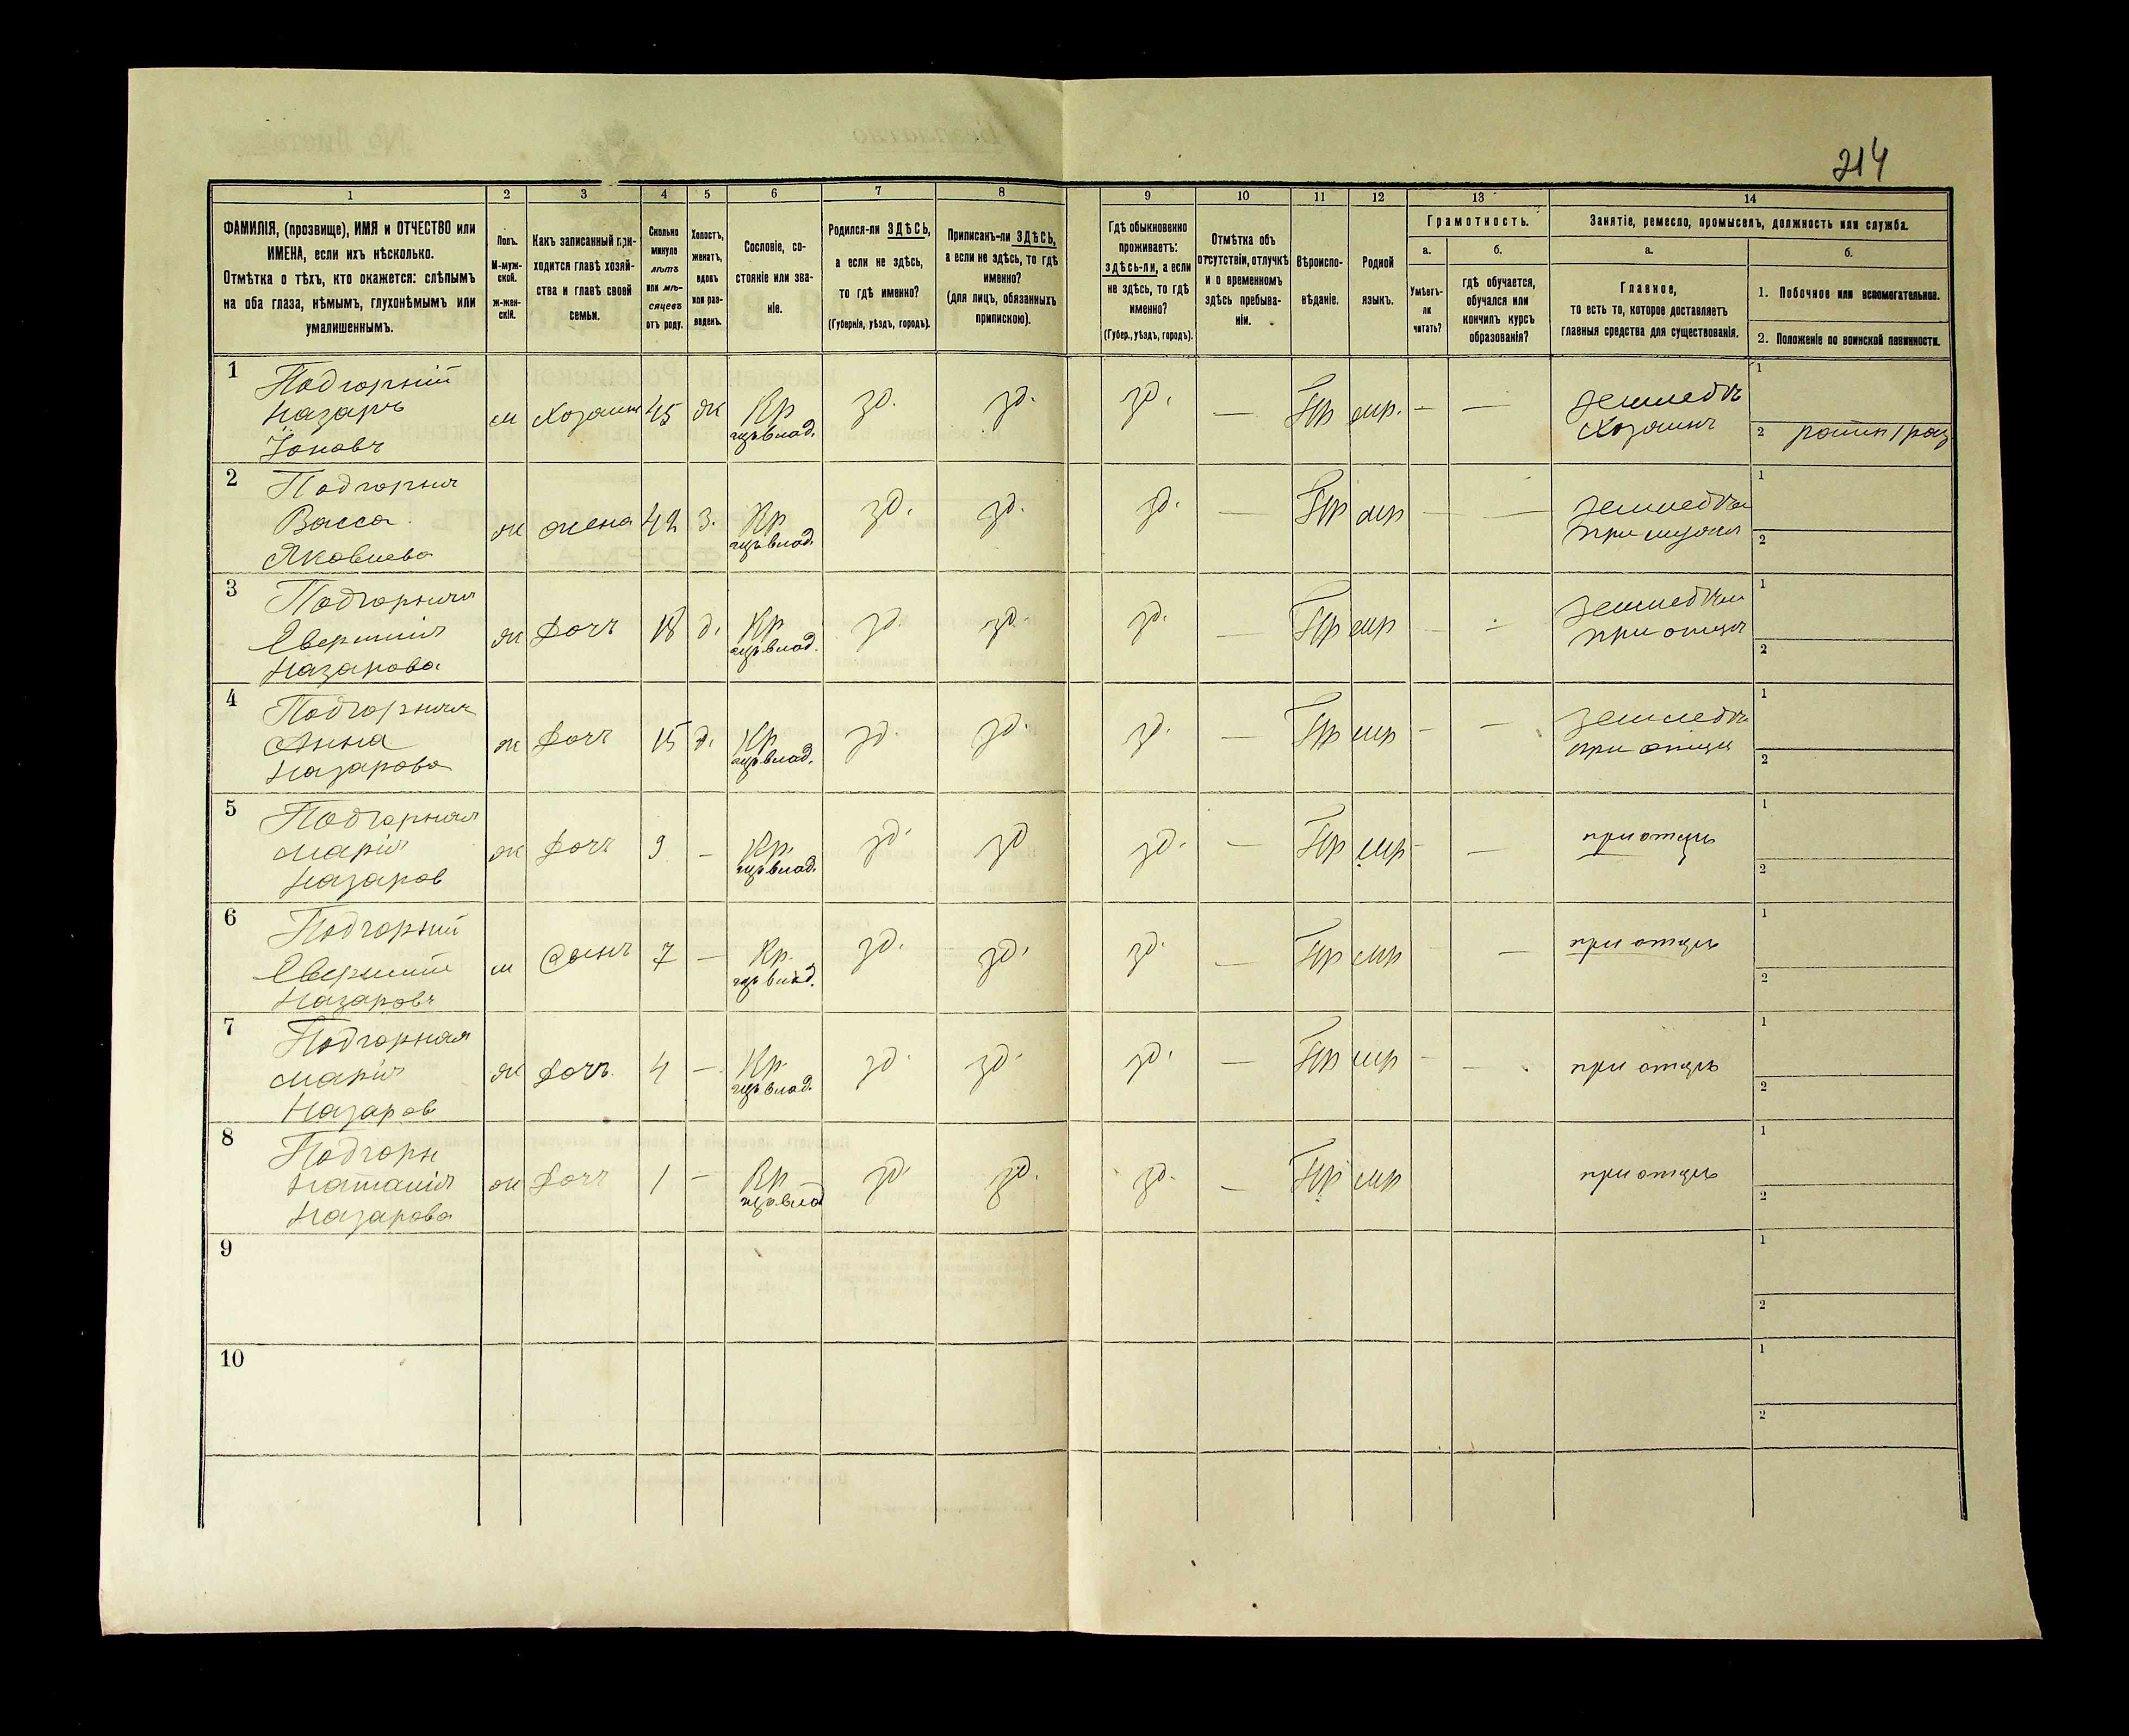 214
1 2 3 4 5 6 7 8 9 10 11 12 13 14
ФАМИЛІЯ, (прозвище), ИМЯ и ОТЧЕСТВО или
ИМЕНА, если ихъ нѣсколько.
Отмѣтка о тѣхъ, кто окажется: слѣпымъ
на оба глаза, нѣмымъ, глухонѣмымъ или
умалишеннымъ.
Полъ.
М-муж-
ской.
ж-жен-
скій.
Какъ записанный при-
ходится главѣ хозяй-
ства и главѣ своей
семьи.
Сколько
минуло
лѣтъ
или мѣ-
сяцевъ
отъ роду.
Холостъ,
женатъ,
вдовъ
или раз-
веденъ.
Сословіе, со-
стояніе или зва-
ніе.
Родился-ли ЗДѢСЬ,
а если не здѣсь,
то гдѣ именно?
(Губернія, уѣздъ, городъ).
Приписанъ-ли ЗДѢСЬ,
а если не здѣсь, то гдѣ
именно?
(для лицъ, обязанныхъ
припискою).
Гдѣ обыкновенно
проживаетъ:
здѣсь-ли, а если
не здѣсь, то гдѣ
именно?
(Губер., уѣздъ, городъ).
Отмѣтка объ
отсутствіи, отлучкѣ
и о временномъ
здѣсь пребыва-
ніи.
Вѣроиспо-
вѣданіе.
Родной
языкъ.
Грамотность.
а.
Умѣетъ-
ли
читать?
б.
гдѣ обучается,
обучался или
кончилъ курсъ
образованія?
Занятіе, ремесло, промыселъ, должность или служба.
а.
Главное,
то есть то, которое доставляетъ
главныя средства для существованія.
б.
1. Побочное или вспомогательное.
2. Положеніе по воинской повинности.
1 Подгорній
Назаръ
Іоновъ
м Хозяинъ 45 ж Кр зд. зд. зд. — Пр мр. — — 1
2
Хозяинъ
2 Подгорная
Васса
Яковлева
ж жена 42 з. Кр зд. зд. зд. — Пр мр — — 1
при мужѣ 2
3 Подгорная
Назарова
ж Дочь 18 д. Кр зд. зд. зд. — Пр мр — — 1
при отцѣ 2
4 Подгорная
Анна
Назарова
ж Дочь 15 д. Кр зд. зд. зд. — Пр мр — — 1
при отцѣ 2
5 Подгорная
Марія
Назаров
ж Дочь 9 — Кр. зд. зд зд. — Пр мр — — при отцѣ 1
2
6 Подгорній
Назаровъ
м Сынъ 7 — Кр. зд. зд. зд. — Пр мр — при отцѣ 1
2
7 Подгорная
Марія
Назаров
ж Дочь 4 — Кр. зд. зд. зд. — Пр мр — — при отцѣ 1
2
8 Подгорн
Наталія
Назарова
ж Дочь 1 — Кр зд. зд. зд. — Пр мр при отцѣ 1
2
9 1
2
10 1
2